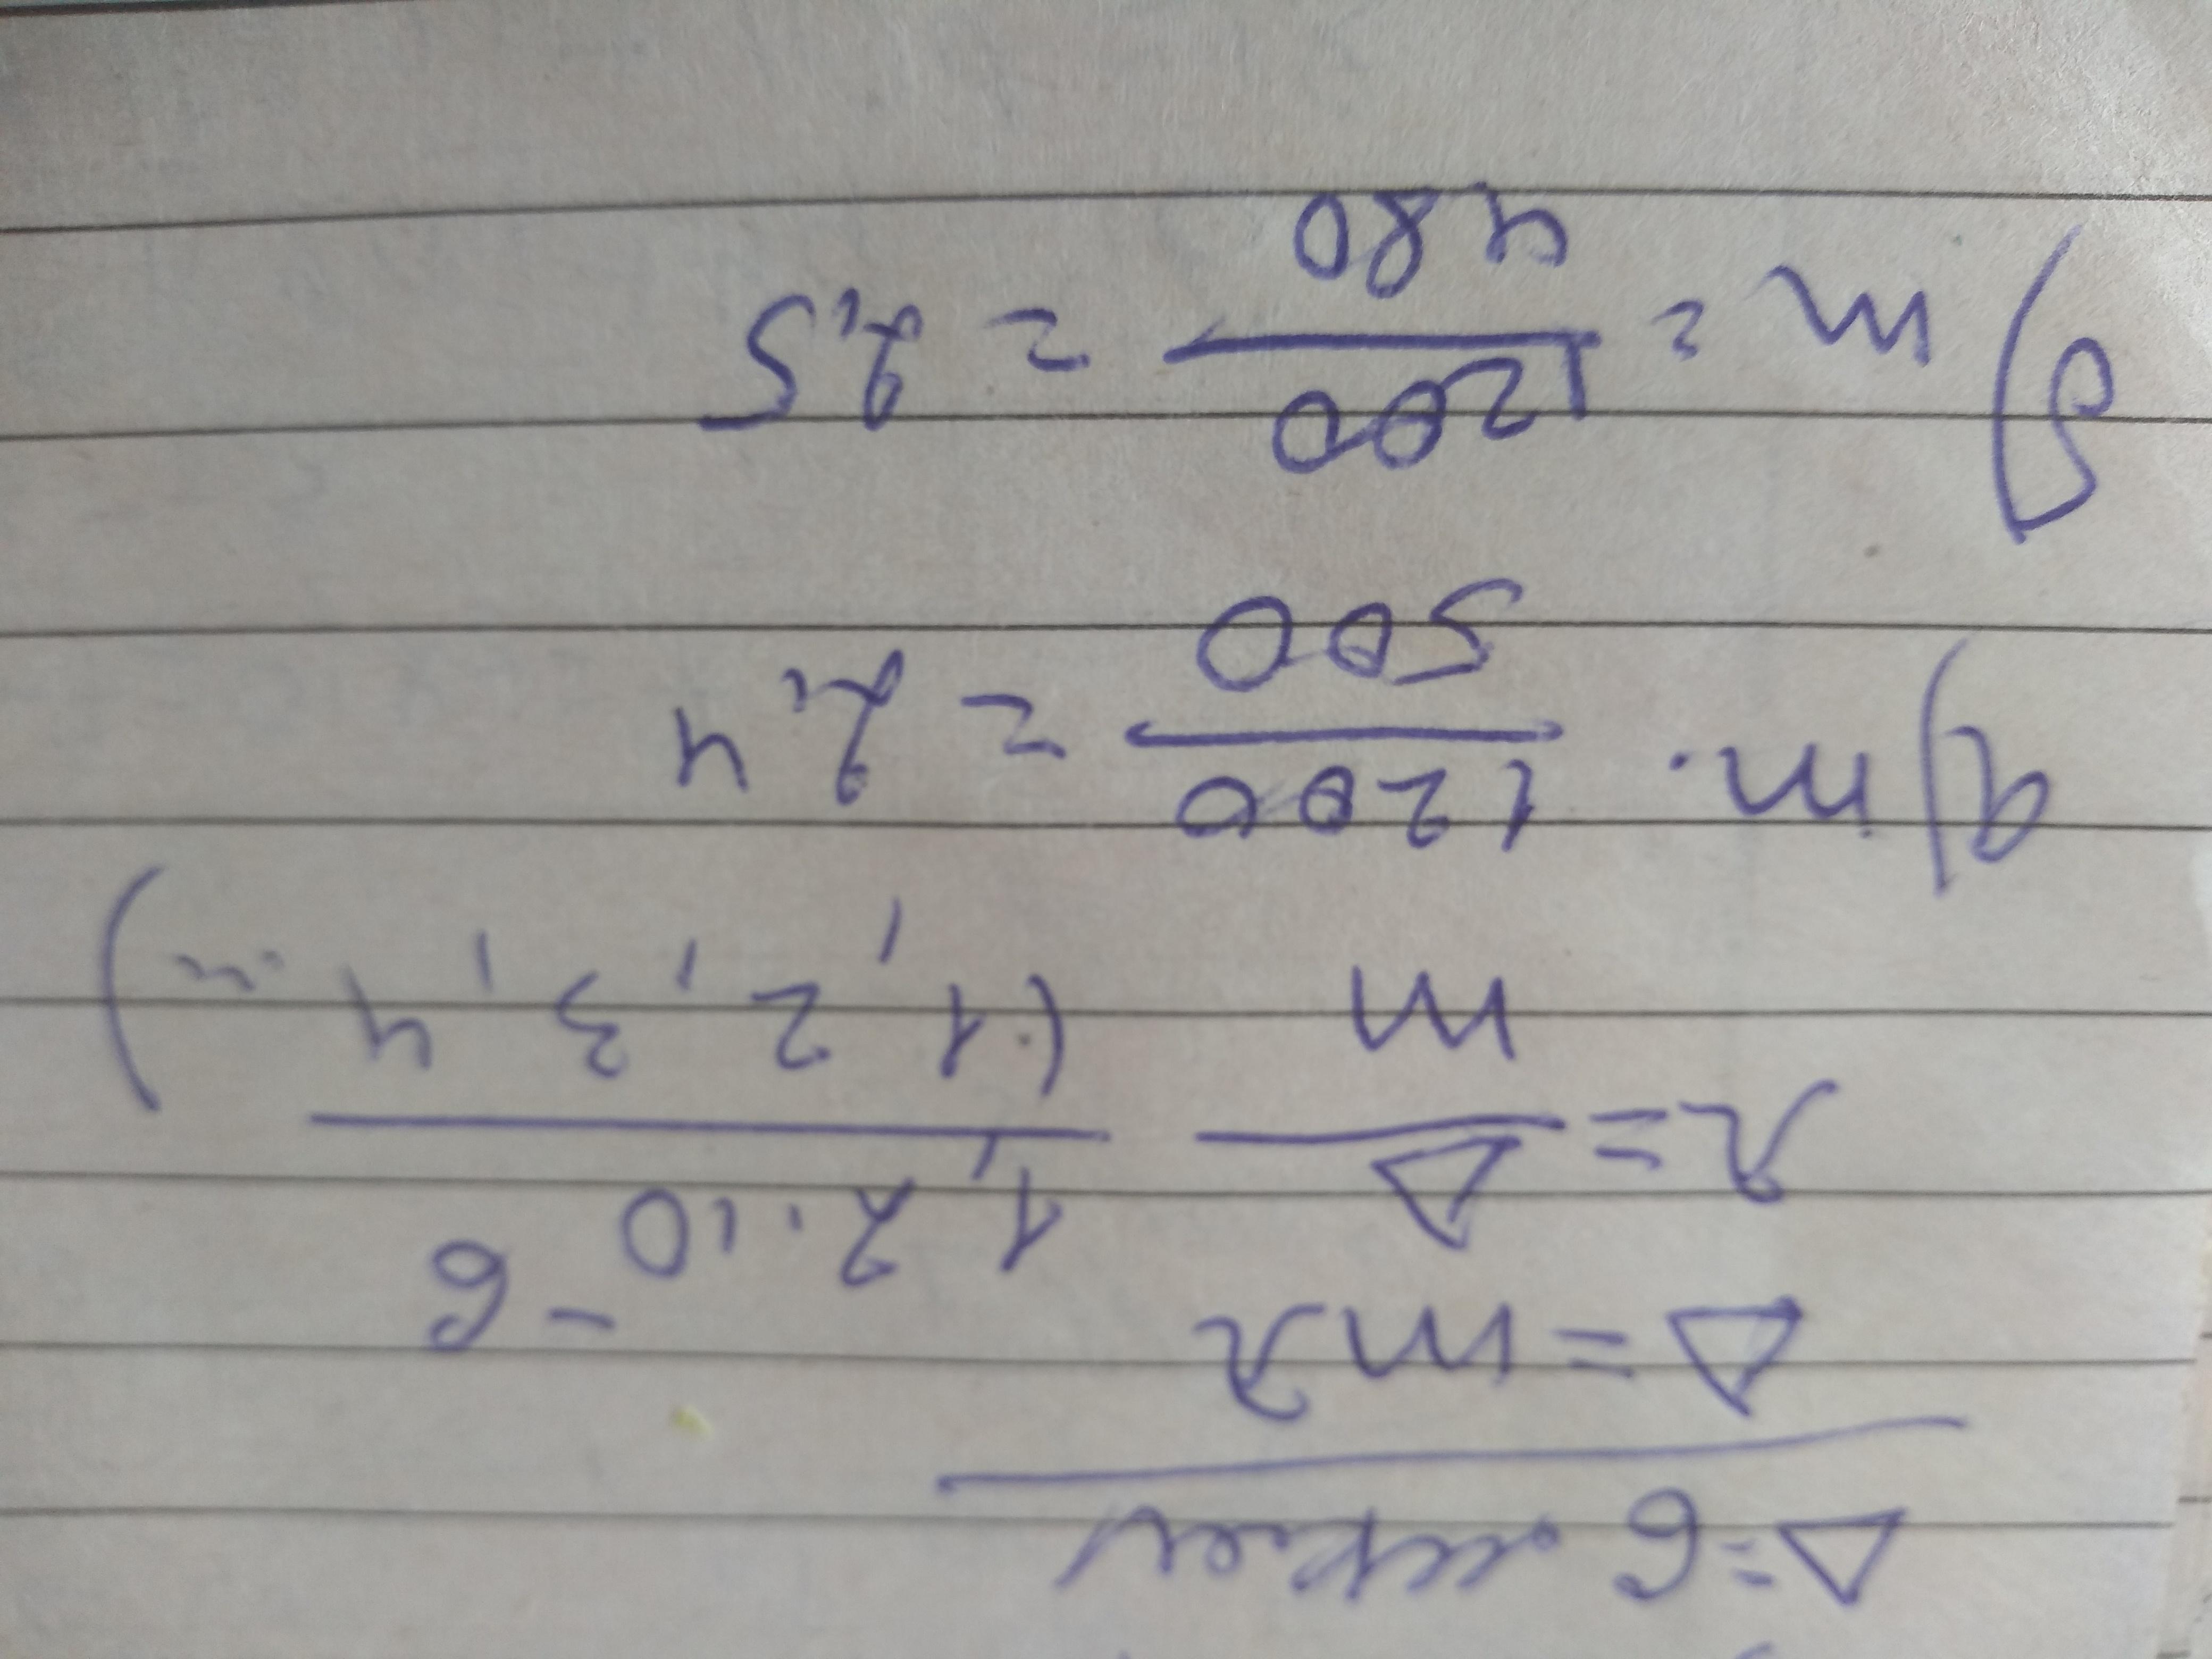 Δ = 6
Δ = mλ
λ = Δ/m 1,2·10⁻⁶/(1, 2, 3, 4 ...)
а) m. 1200/500 = 2,4
б) m = 1200/480 = 2,5